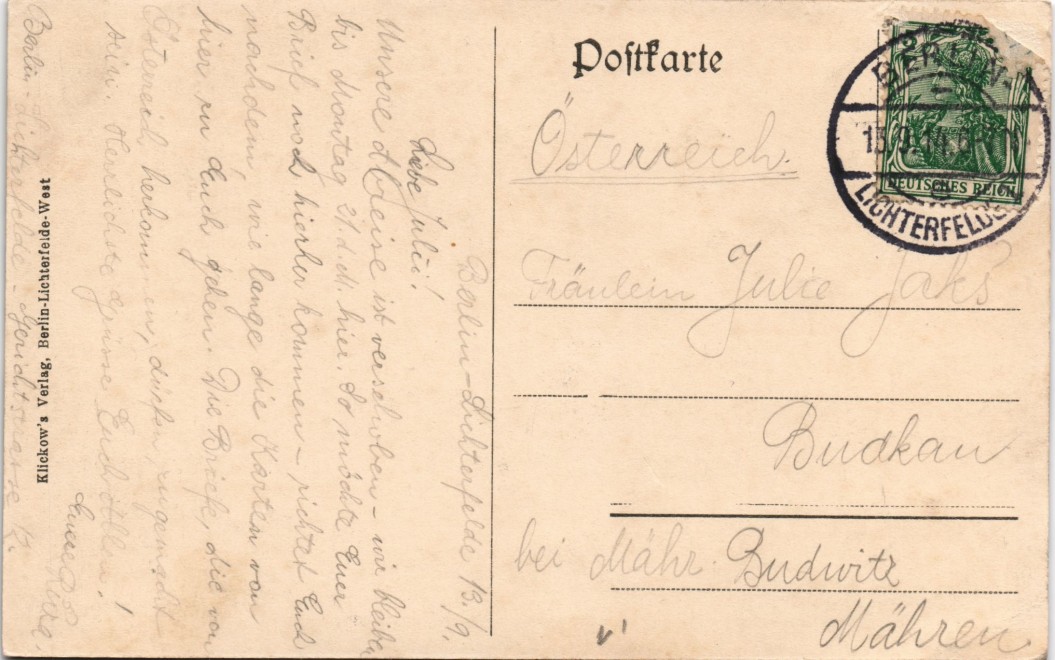 Postkarte
BERLIN
13.9.14.
LICHTERFELDE
DEUTSCHES REICH
Österreich.
Fräulein Julie Jaks
Budkau
bei Mähr. Budwitz
Mähren
Berlin-Lichterfelde 13./9.
Liebe Julii!
Unsere Abreise ist verschoben - wir bleiben
bis Montag 21. d. M. hier. So möchte Euer
Brief noch hierher kommen - richtet Euch
nachdem, wie lange die Karten von
hier zu Euch gehen. Die Briefe, die von
Österreich herkommen, dürfen zugemacht
sein. Herzlichste Grüsse Euch Allen!
Berlin-Lichterfelde-
Klickow's Verlag, Berlin-Lichterfelde-West